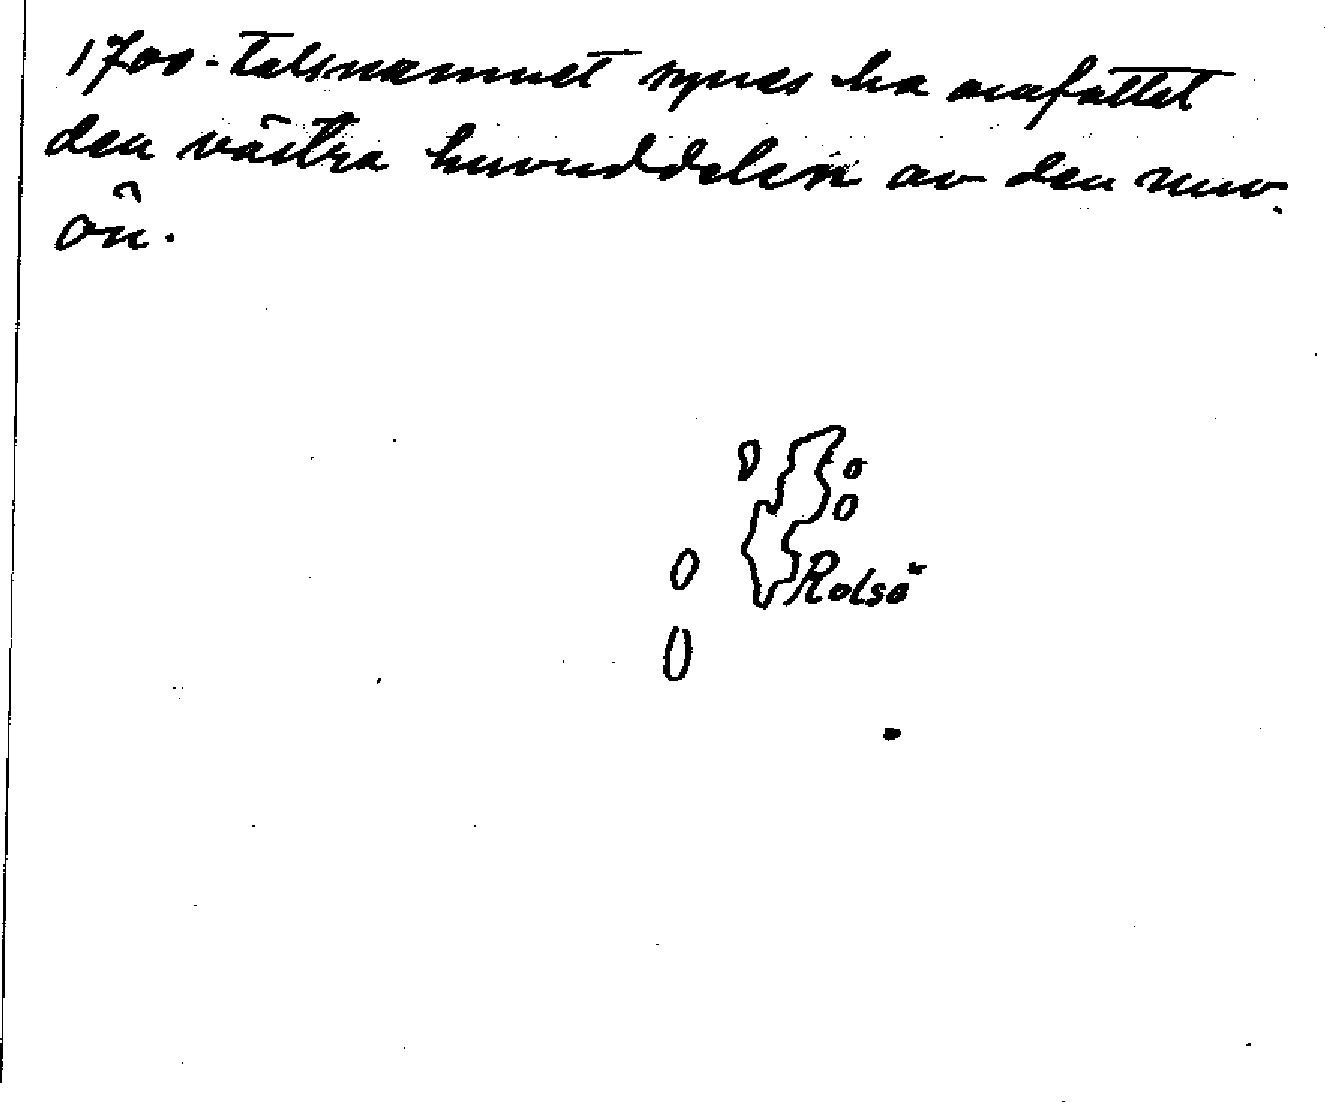 1700-talsnamnet synes ha omfattat
den västra huvuddelen av den nuv.
ön.
Rolsö